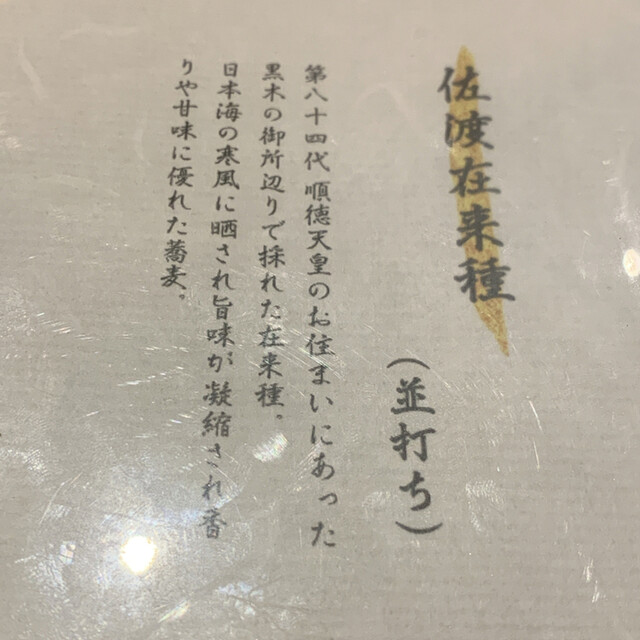 佐渡在来種
(並打ち)
第八十四代順徳天皇のお住まいにあった
黒木の御所辺りで採れた在来種、
日本海の寒風に晒され旨味が凝縮され香
りや甘味に優れた蕎麦。